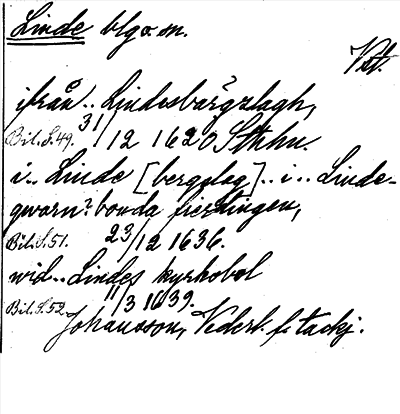 Linde blgo sn.
Vst.
ifrån.. Lindesbärgzlagh,
Bil. S. 49. 31/12 1620 Sthlm.
i.. Linde [bergslag].. i.. Linde-
gwarn? bonda fierdingen,
Bil. S. 51. 23/12 1636.
wid.. Lindes kyrkobol
Bil. S. 52. 11/3 1639.
Johansson, Vederl. f.